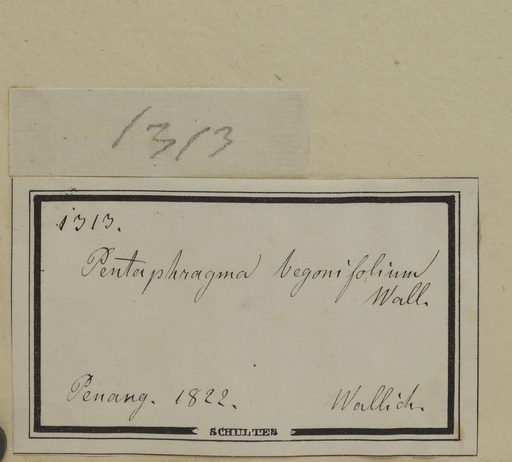 1313
1313.
Pentaphragma begonifolium
Wall.
Penang. 1822. Wallich.
SCHULTES